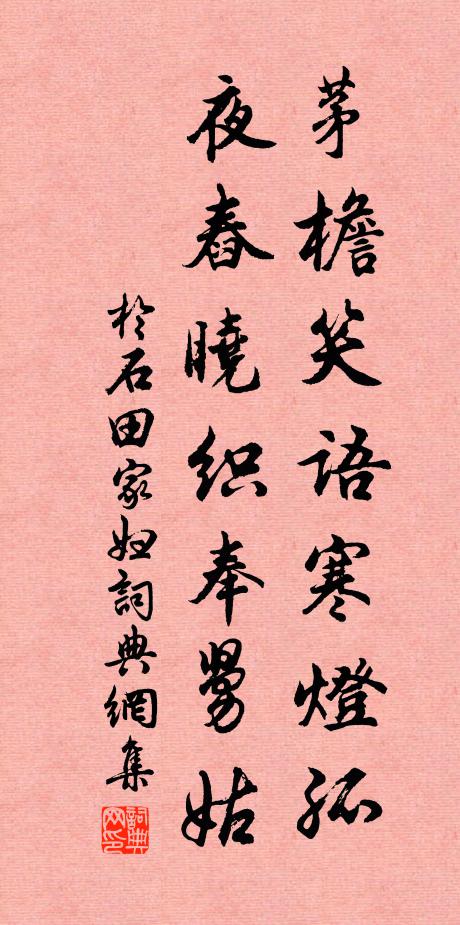 茅檐笑语寒燈孤
夜舂曉织奉舅姑
於石田家婦詞典網集
詞典网印